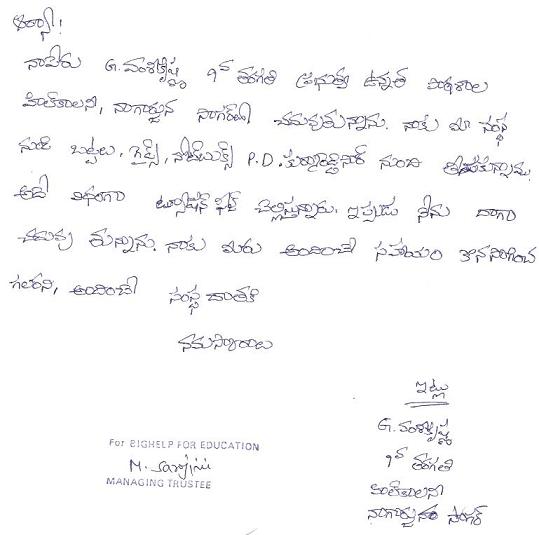 ఆర్యా!
నాపేరు G. వంశీకృష్ణ 9వ తరగతి ప్రభుత్వ ఉన్నత పాఠశాల
హిల్‌కాలని, నాగార్జున సాగర్‌లో చదువుతున్నాను. నాకు మీ సంస్థ
నుండి బట్టలు, గైడ్స్, నోట్‌బుక్స్ P.D. సార్ నుండి తీసుకున్నాము.
అదే విధంగా ట్యూషన్ ఫీజ్ చెల్లిస్తున్నారు. ఇప్పుడు నేను బాగా
చదువు తున్నాను. నాకు మీరు అందించే సహాయం కొనసాగించ
గలరని, అందించే సంస్థ దాతకి
నమస్కారాలు
ఇట్లు
G. వంశీకృష్ణ
9వ తరగతి
హిల్‌కాలని
నాగార్జున సాగర్
For BIGHELP FOR EDUCATION
M. Sarojini
MANAGING TRUSTEE